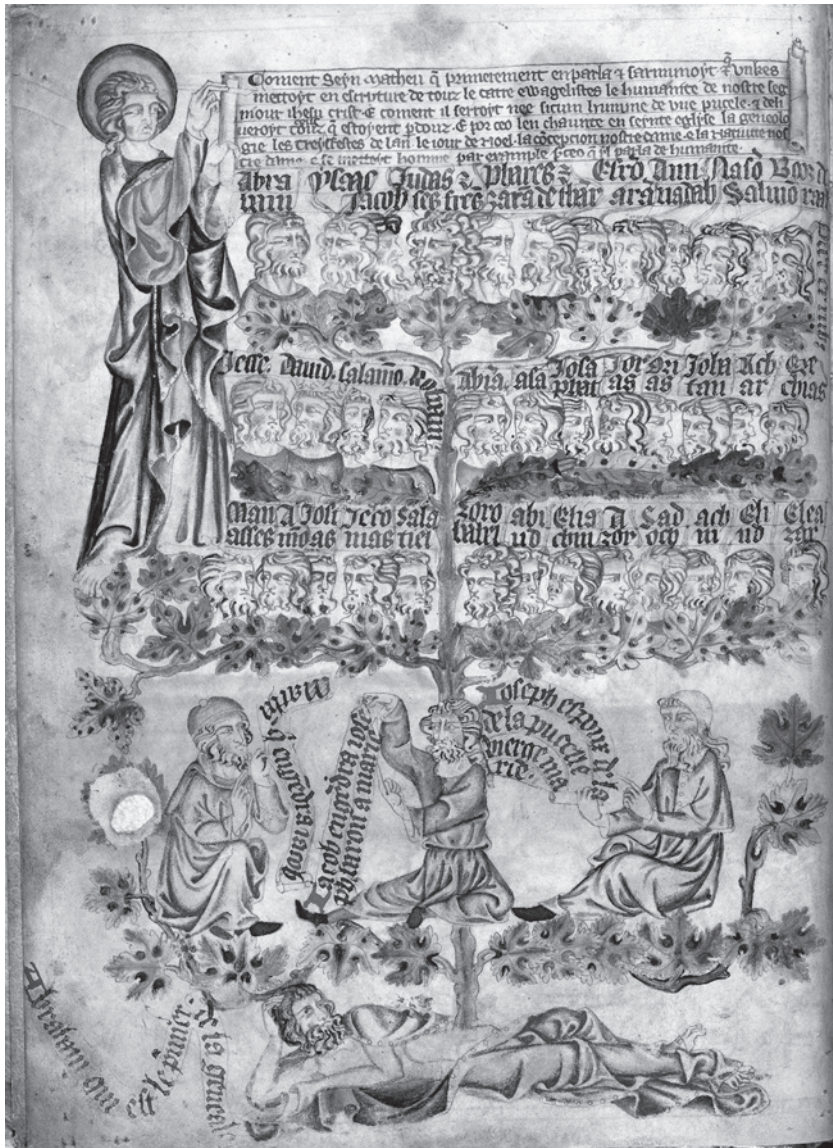 Coment Seyn Matheu q̄ primerement en parla & sarmmoyt & unkes
mettoyt en escryture de touz le catre ewagelistes le humanite de nostre seg
nour ihesu crist · E coment il serroyt nee sicum humme de vne pucele · & deli
ueroyt touz q̄ estoyent pdouz · E por ceo len chaunte en seinte eglyse la geneolo
gie les
de lan le iour de noel · la cōcepcion nostre dame · e la natiuite nos
tre dame · e se mettoyt homme par example · p̄ ceo q̄ il parla de humanite ·
Abra ysaac Judas & Phares & Esrō Am Nasō Booz d
ham Jacob ses freres zarā de thar aram inadab Salmō raa
Jesse · david · salamō · Ro
boam
Abia · asa Josa Jor Ozi Jota Ach Eze
phat as as tan ar chias
Man A Josi Jeco Sala
asses mo as nias tiel
Zoro abi Elia A Sad ach Eli Elea
babel ud chim zor och in ud zar
Matha
q̄ engedra iacob
Jacob engedra iose
ph baron a marie
Joseph espouz de la
de la pucelle
vierge ma
rie ·
Abraham qui
est le primer ·
de la geneal